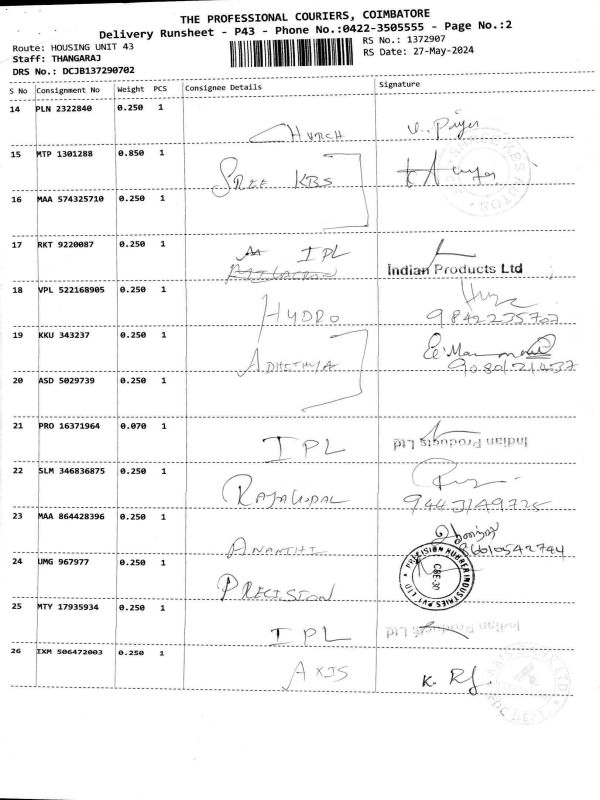 THE PROFESSIONAL COURIERS, COIMBATORE
Delivery Runsheet - P43 - Phone No.:0422-3505555 - Page No.:2
Route: HOUSING UNIT 43
RS No.: 1372907
Staff: THANGARAJ
RS Date: 27-May-2024
DRS No.: DCJB137290702
S No Consignment No Weight PCS Consignee Details Signature
14 PLN 2322840 0.250 1
CHURCH
15 MTP 1301288 0.850 1
SREE KBS
16 MAA 574325710 0.250 1
17 RKT 9220087 0.250 1
IPL
Indian Products Ltd
18 VPL 522168905 0.250 1
HYDRO 9842235707
19 KKU 343237 0.250 1
ADHITHYA
20 ASD 5029739 0.250 1
21 PRO 16371964 0.070 1
IPL Indian Products Ltd
22 SLM 346836875 0.250 1
RAJAGOPAL
23 MAA 864428396 0.250 1
ANANTHI 8610542744
24 UMG 967977 0.250 1
PRECISION
CBE-30
25 MTY 17935934 0.250 1
IPL Indian Products Ltd
26 IXM 506472003 0.250 1
AXIS